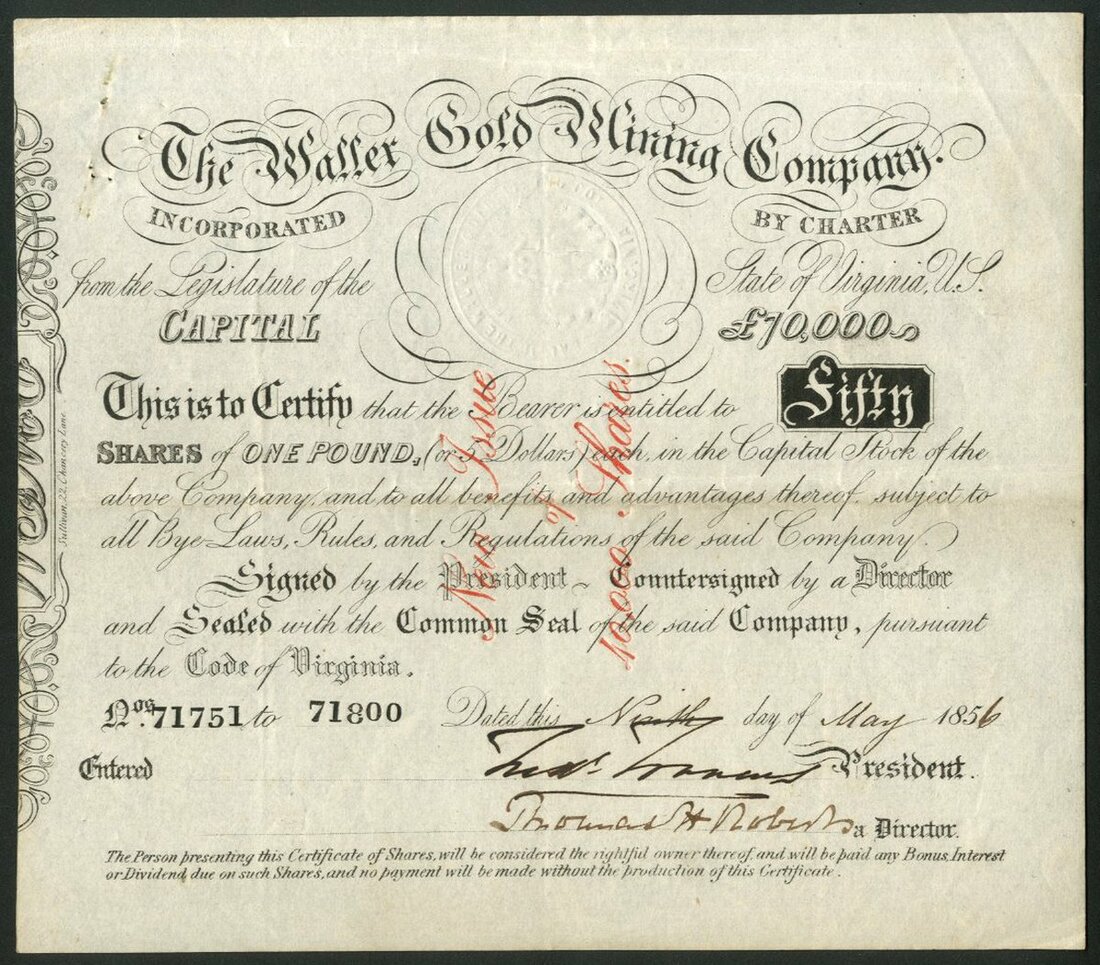 The Waller Gold Mining Company.
INCORPORATED BY CHARTER
from the Legislature of the State of Virginia, U.S.
CAPITAL £70,000
This is to Certify that the Bearer is entitled to Fifty
SHARES of ONE POUND, (or 5 Dollars) each, in the Capital Stock of the
above Company, and to all benefits and advantages thereof, subject to
all Bye-Laws, Rules, and Regulations of the said Company.
Signed by the President, Countersigned by a Director
and Sealed with the Common Seal of the said Company, pursuant
to the Code of Virginia.
New Issue
of
10000 Shares.
Nos. 71751 to 71800 Dated this Ninth day of May 1856
Entered President.
Thomas H Roberts a Director.
The Person presenting this Certificate of Shares, will be considered the rightful owner thereof, and will be paid any Bonus, Interest
or Dividend due on such Shares, and no payment will be made without the production of this Certificate.
Sullivan, 22, Chancery Lane